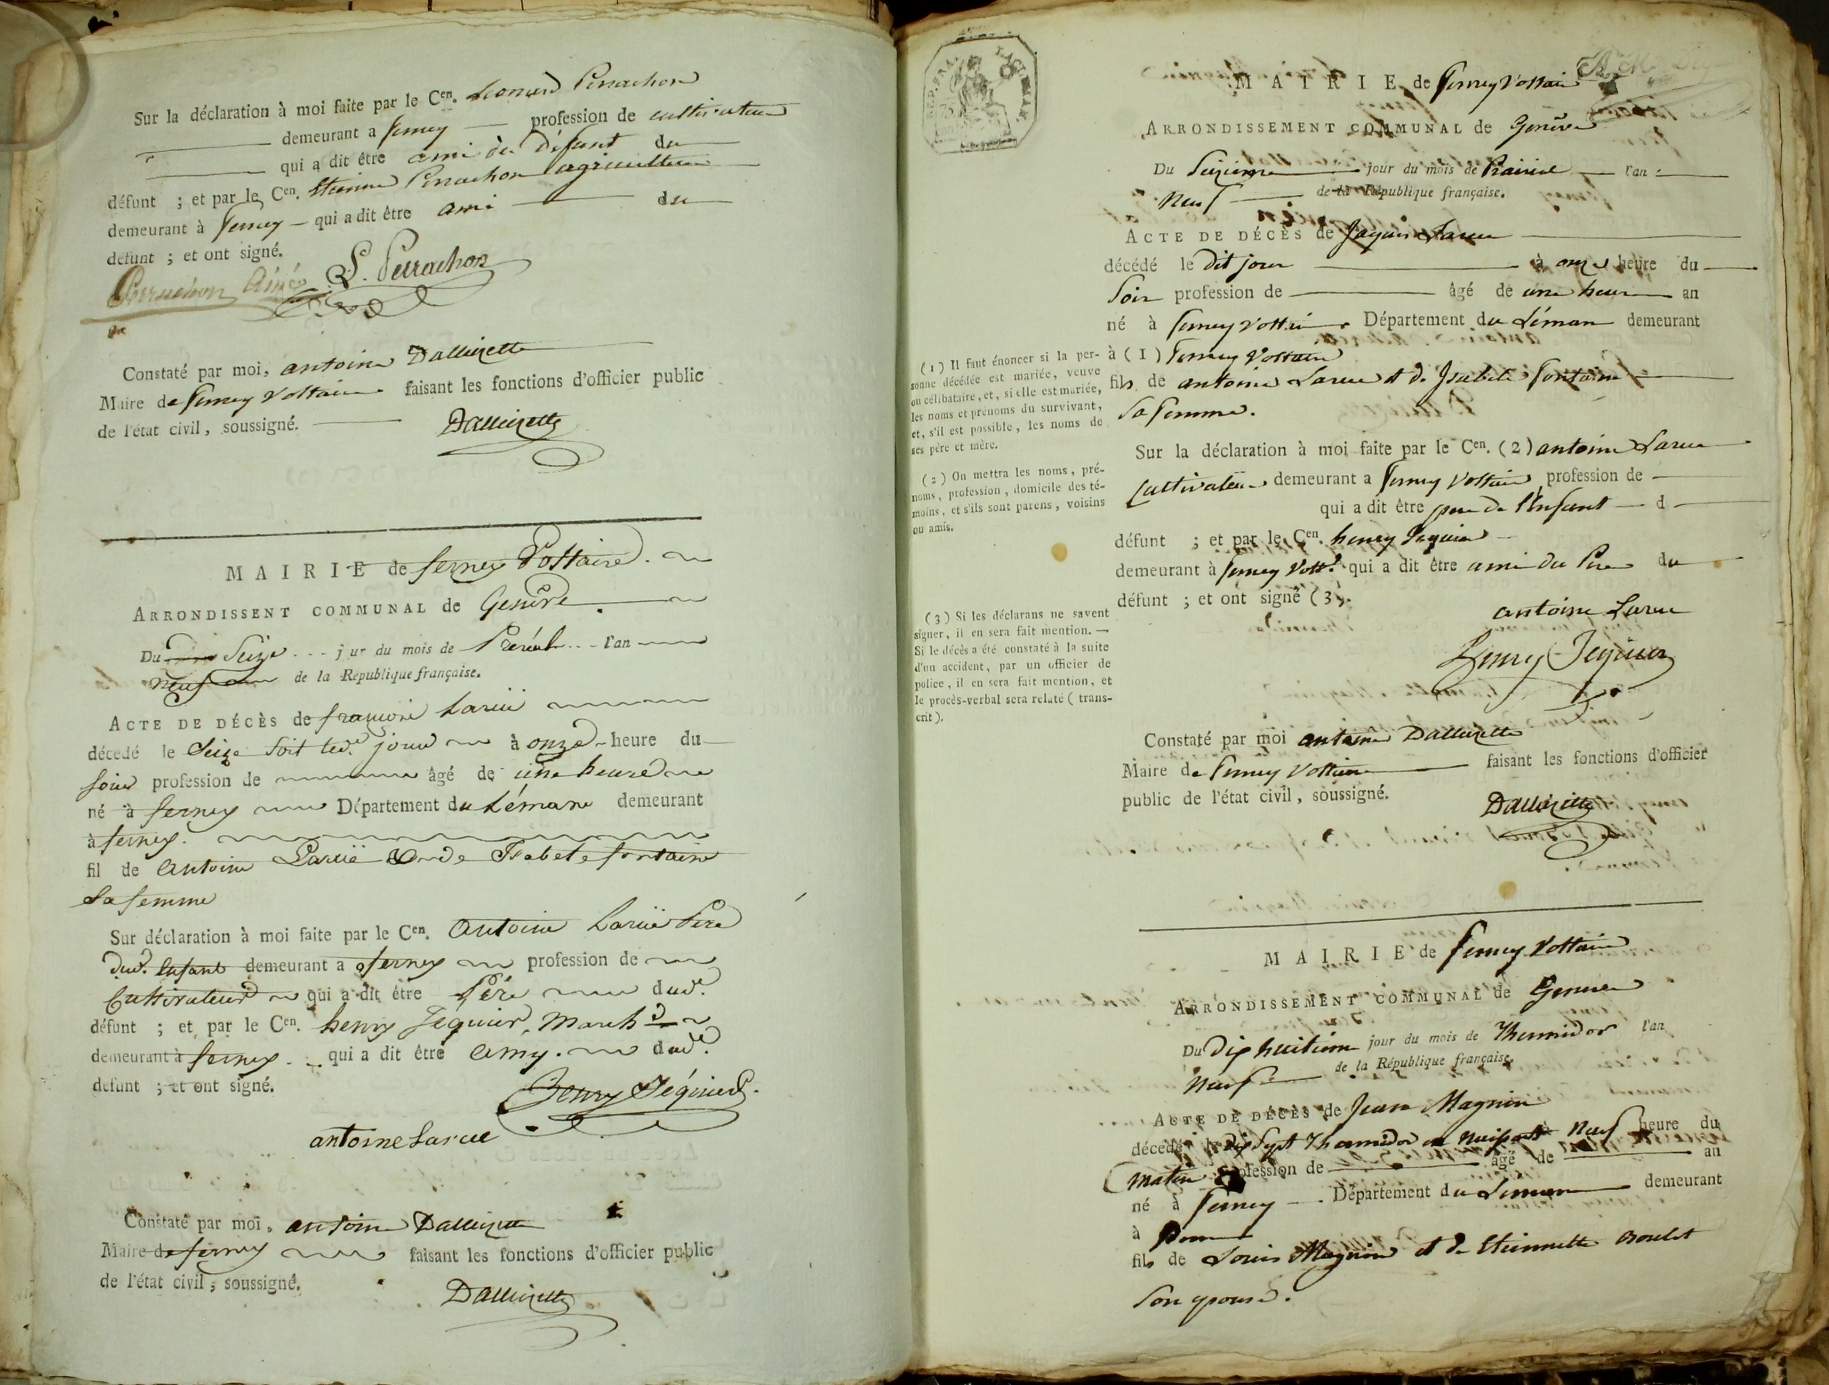 Sur la déclaration à moi faite par le Cen. Leonard Perrachon
demeurant a ferney profession de cultivateur
qui a dit être ami du Défunt du
défunt ; et par le Cen. Etienne Perrachon agriculteur
demeurant à ferney qui a dit être ami du
défunt ; et ont signé.
Perrachon Ainé L. Perrachon
Constaté par moi, antoine Dallizette
Maire de ferney Voltaire faisant les fonctions d'officier public
de l'état civil, soussigné.
Dallizette
MAIRIE de ferney Voltaire
ARRONDISSENT COMMUNAL de Genève
Du Seize jour du mois de Preréal l'an
neuf de la République française.
ACTE DE DÉCÈS de françois Laruë
décedé le Seize soit led. jour à onze heure du
soir profession de âgé de une heure
né à ferney Département du Léman demeurant
à ferney.
fil de Antoine Laruë et de Isabele fontaine
Sa femme
Sur déclaration à moi faite par le Cen. Antoine Laruë Pere
dud. Enfant demeurant a ferney profession de
Cultivateur qui a dit être Pére dud.
défunt ; et par le Cen. henry Jequier, March.d
demeurant à ferney qui a dit être amy. dud.
defunt ; et ont signé.
henry Jéquier
antoine Larue
Constaté par moi, antoine Dallizette
Maire de ferney faisant les fonctions d'officier public
de l'état civil, soussigné.
Dallizette
MAIRIE de ferney Voltaire
ARRONDISSEMENT COMMUNAL de Genève
Du Seizieme jour du mois de Prairial l'an
Neuf de la République française.
ACTE DE DÉCÈS de Larue
décédé le dit jour à onze heure du
Soir profession de âgé de une heure an
né à ferney Voltaire Département du Léman demeurant
à (1) ferney Voltaire
fils de antoine Larue et de Isabele fontaine
Sa femme.
(1) Il faut énoncer si la per-
sonne décédée est mariée, veuve
ou célibataire, et, si elle est mariée,
les noms et prénoms du survivant,
et, s'il est possible, les noms de
ses père et mère.
Sur la déclaration à moi faite par le Cen. (2) antoine Larue
Cultivateur demeurant a ferney Voltaire profession de
qui a dit être pere de l'Enfant d
défunt ; et par le Cen. henry Jequier
demeurant à ferney Volt.e qui a dit être ami du Pere du
défunt ; et ont signé (3).
(2) On mettra les noms, pré-
noms, profession, domicile des té-
moins, et s'ils sont parens, voisins
ou amis.
(3) Si les déclarans ne savent
signer, il en sera fait mention. —
Si le décès a été constaté à la suite
d'un accident, par un officier de
police, il en sera fait mention, et
le procès-verbal sera relaté (trans-
crit).
antoine Larue
henry Jequier
Constaté par moi antoine Dallizette
Maire de ferney Voltaire faisant les fonctions d'officier
public de l'état civil, soussigné.
Dallizette
MAIRIE de ferney Voltaire
ARRONDISSEMENT COMMUNAL de Geneve
Du dix huitieme jour du mois de Thermidor l'an
Neuf de la République française.
ACTE DE DÉCÈS de Jean Magnin
décédé le dix Sept Thermidor en naissant à Neuf heure du
matin profession de âgé de an
né à ferney Département du Léman demeurant
à
fils de Louis Magnin et de Etiennette
Son epouse.